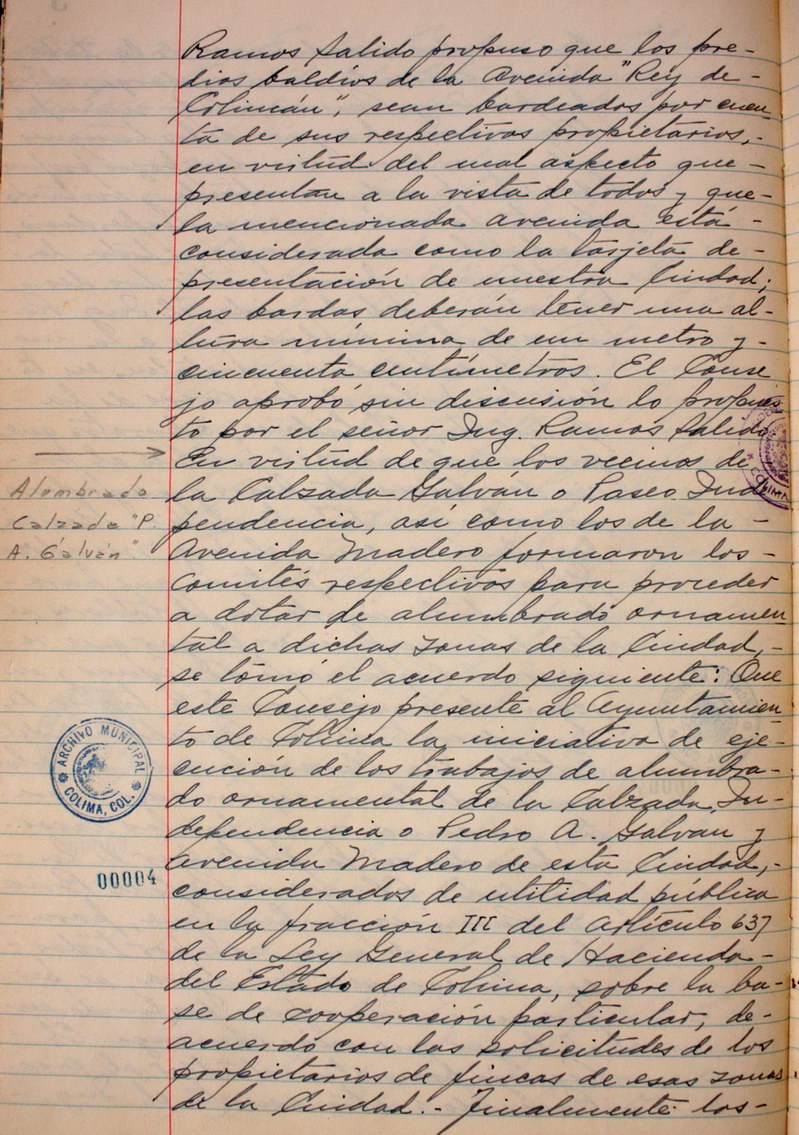 Ramos Salido propuso que los pre-
dios baldíos de la Avenida "Rey de-
Colimán", sean bardeados por cuen-
ta de sus respectivos propietarios,-
en virtud del mal aspecto que-
presentan a la vista de todos y que-
la mencionada avenida está-
considerada como la tarjeta de-
presentación de nuestra Ciudad;
las bardas deberán tener una al-
tura mínima de un metro y-
cincuenta centímetros. El Conse
jo aprobó sin discusión lo propues
to por el señor Ing. Ramos Salido.
En virtud de que los vecinos de
la Calzada Galván o Paseo Inde
pendencia, así como los de la-
Avenida Madero formaron los-
comités respectivos para proceder
a dotar de alumbrado ornamen
tal a dichas zonas de la Ciudad,-
se tomó el acuerdo siguiente: Que
este Consejo presente al Ayuntamien-
to de Colima la iniciativa de eje-
cución de los trabajos de alumbra-
do ornamental de la Calzada In-
dependencia o Pedro A. Galvan y
Avenida Madero de esta Ciudad,-
considerados de utilidad pública
en la fracción III del Artículo 637
de la Ley General de Hacienda-
del Estado de Colima, sobre la ba-
se de cooperación particular, de-
acuerdo con las solicitudes de los
propietarios de fincas de esas zonas
de la Ciudad.- Finalmente los-
Alombrado
Calzada "P.
A. Galván"
ARCHIVO MUNICIPAL
COLIMA, COL.
00004